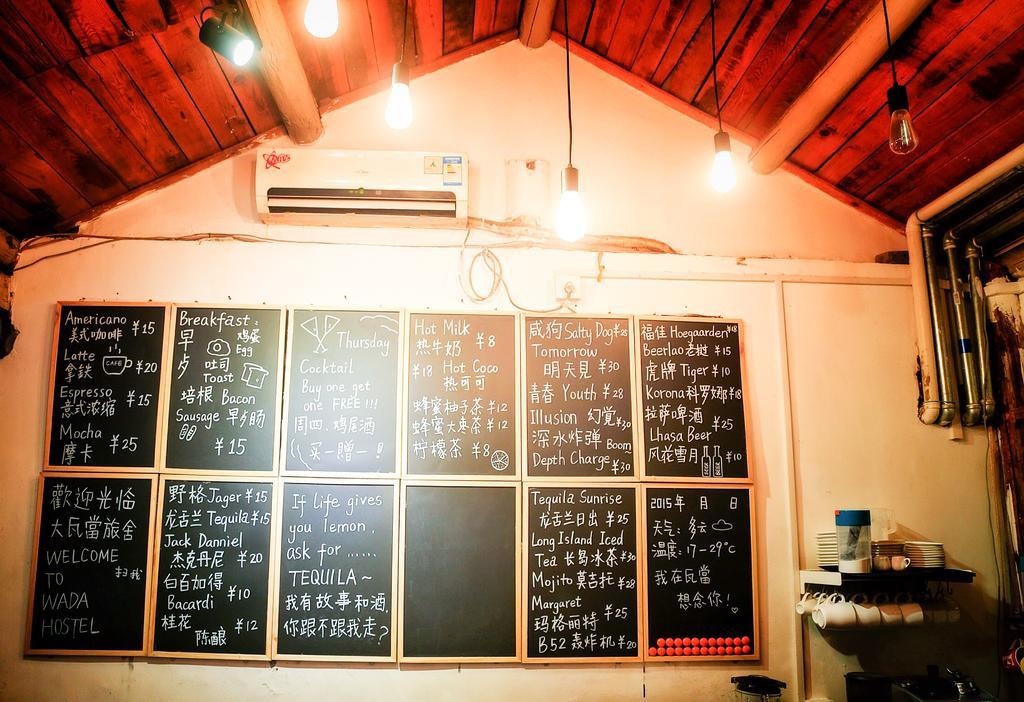 Americano
美式咖啡 ¥15
Latte
拿鉄 CAFE ¥20
Espresso
意式浓缩 ¥15
Mocha
摩卡 ¥25
Breakfast:
早 鸡蛋
Egg
吐司
Toast
培根 Bacon
Sausage 早夕肠
¥15
Thursday
Cocktail
Buy one get
one FREE!!!
周四.鸡尾酒
买一赠一!
Hot Milk
热牛奶 ¥8
¥18 Hot Coco
热可可
蜂蜜柚子茶 ¥12
蜂蜜大枣茶 ¥12
柠檬茶 ¥8
咸狗 Salty Dog ¥28
Tomorrow
明天見 ¥30
青春 Youth ¥28
Illusion 幻覚 ¥30
深水炸弹 Boom
Depth Charge ¥30
福佳 Hoegaarden ¥18
Beerlao 老挝 ¥15
虎牌 Tiger ¥10
Korona 科罗娜 ¥18
拉萨啤酒 ¥25
Lhasa Beer
风花雪月 ¥10
歡迎光临
大瓦當旅舍
WELCOME
TO 扫我
WADA
HOSTEL
野格 Jager ¥15
龙舌兰 Tequila ¥15
Jack Danniel
杰克丹尼 ¥20
白百加得
Bacardi ¥10
桂花
陈酿 ¥12
If life gives
you lemon,
ask for ......
TEQUILA~
我有故事和酒.
你跟不跟我走?
Tequila Sunrise
龙舌兰日出 ¥25
Long Island Iced
Tea 长岛冰茶 ¥30
Mojito 莫吉托 ¥28
Margaret
玛格丽特 ¥25
B52 轰炸机 ¥20
2015年 月 日
天气: 多云
温度: 17-29°C
我在瓦當
想念你!